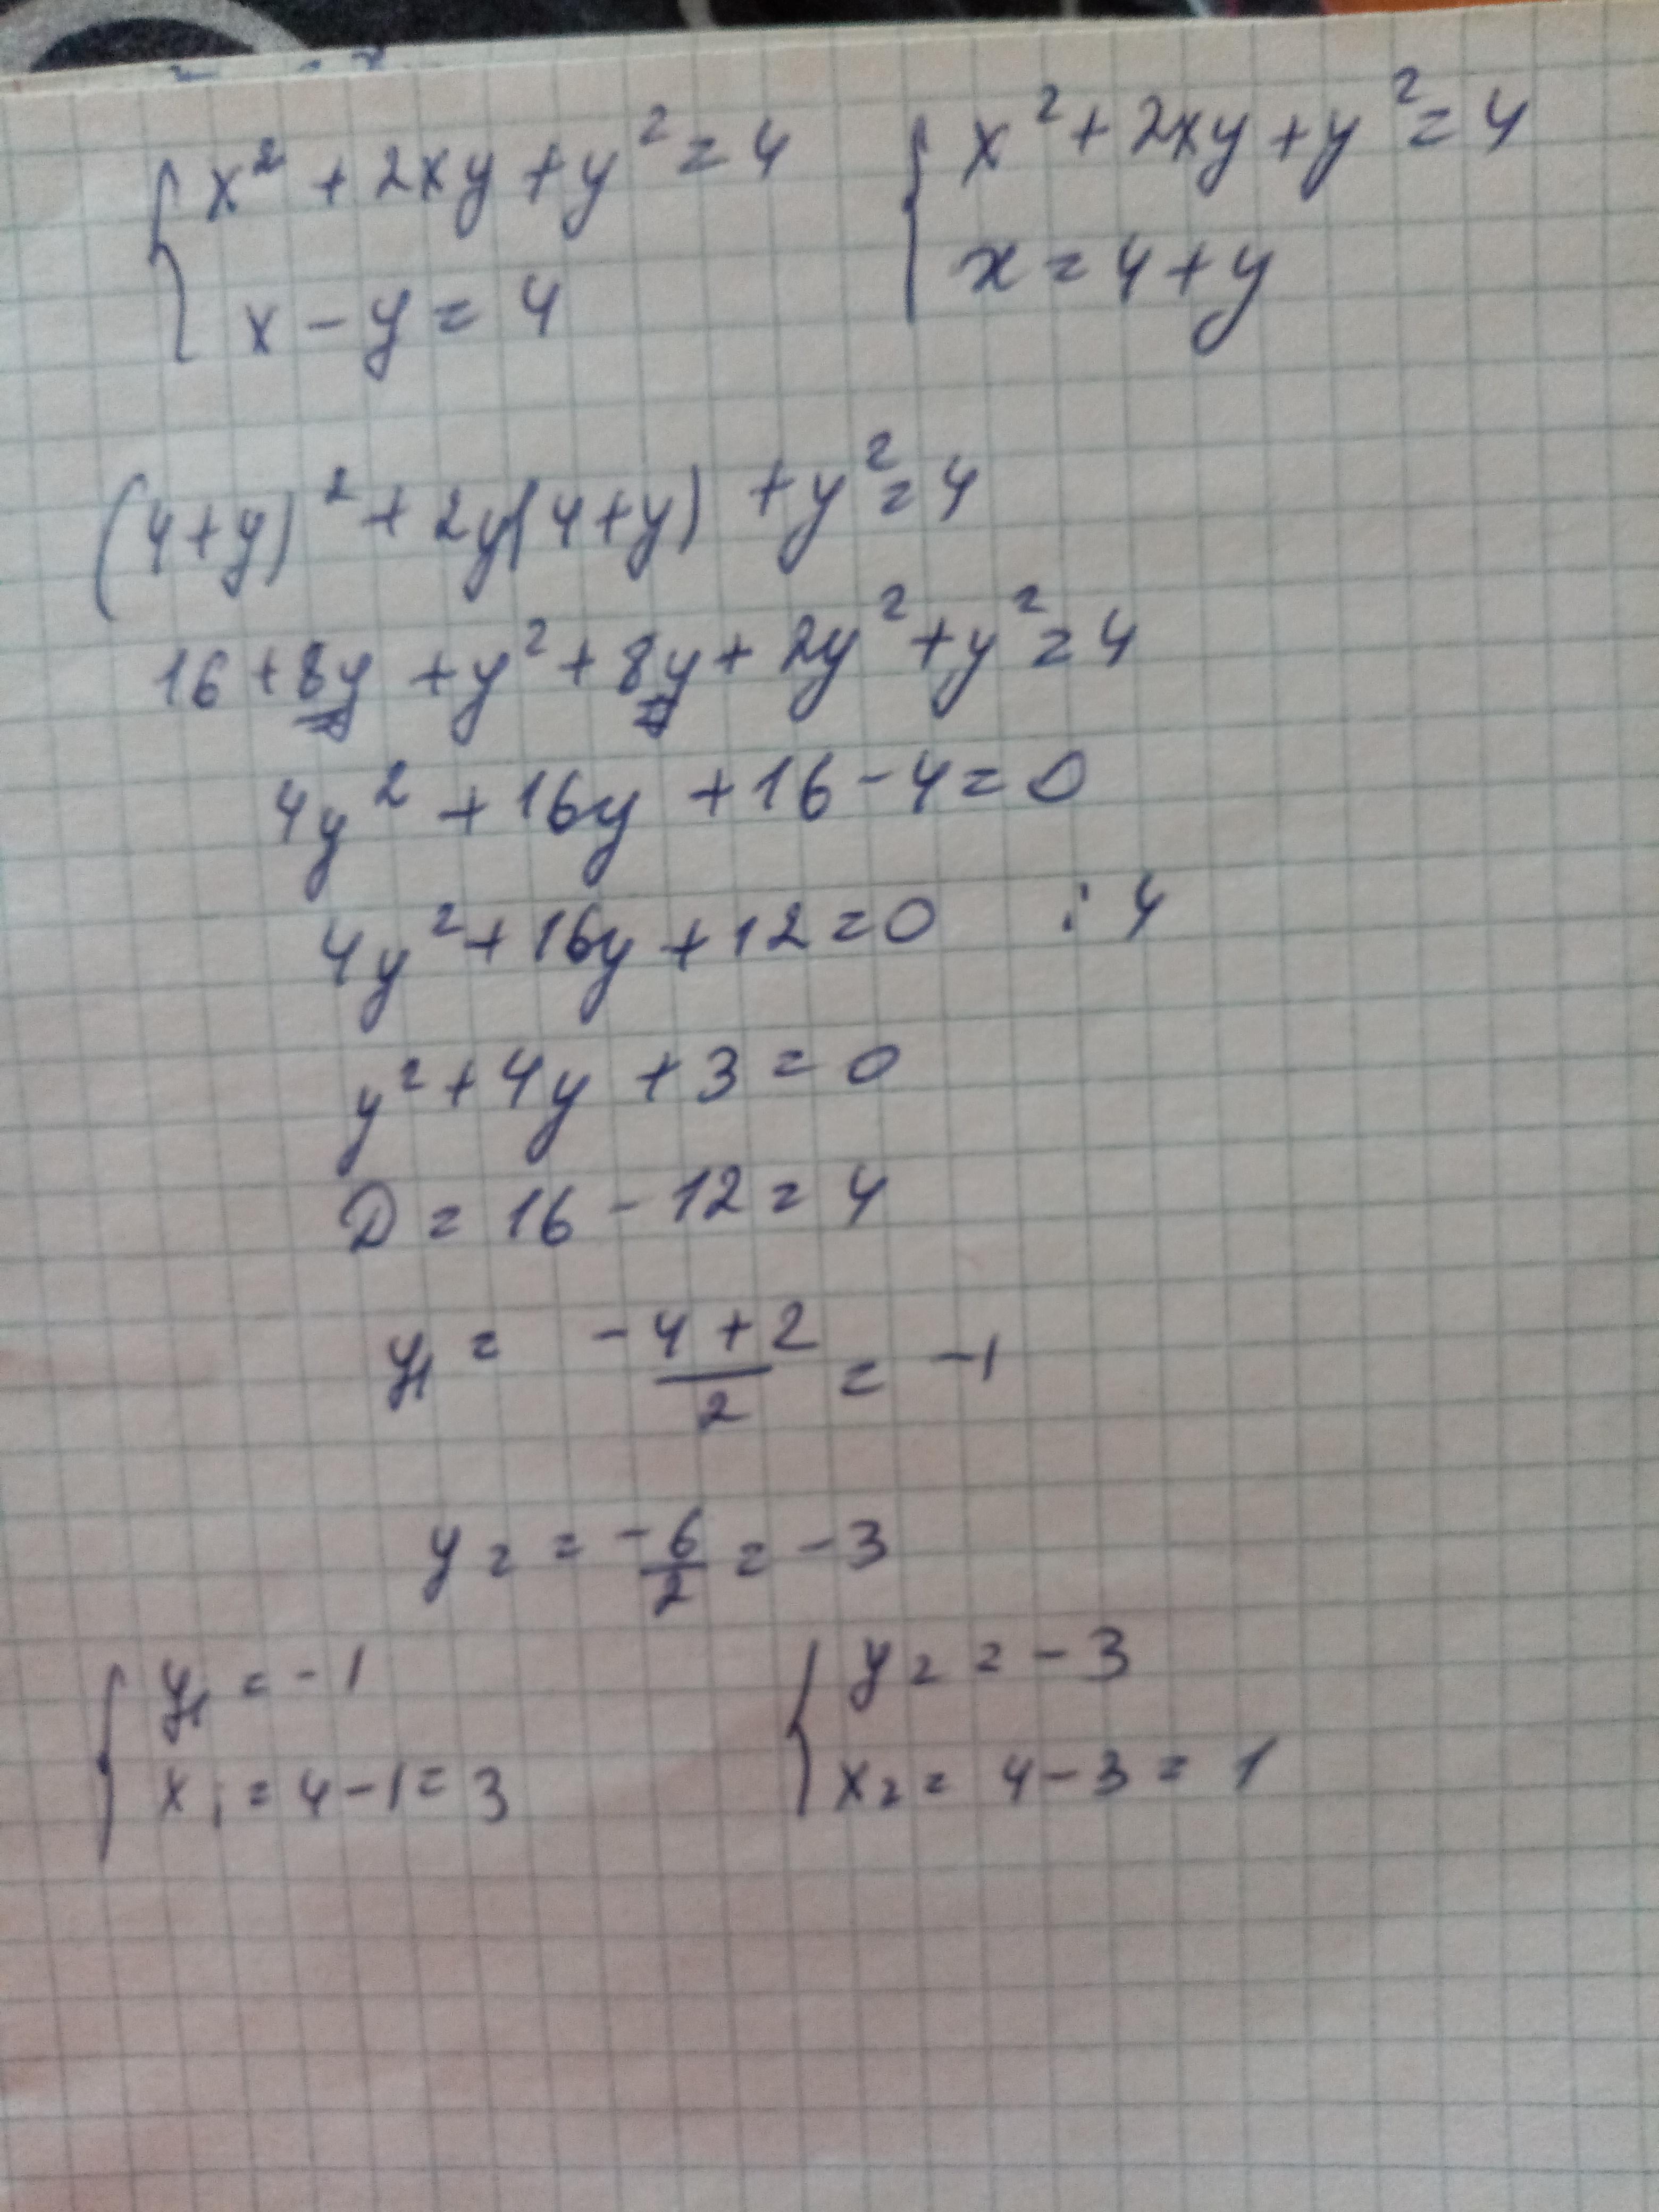 { x² + 2xy + y² = 4 { x² + 2xy + y² = 4
x - y = 4 x = 4 + y
(4+y)² + 2y(4+y) + y² = 4
16 + 8y + y² + 8y + 2y² + y² = 4
4y² + 16y + 16 - 4 = 0
4y² + 16y + 12 = 0 : 4
y² + 4y + 3 = 0
D = 16 - 12 = 4
y₁ = (-4 + 2)/2 = -1
y₂ = -6/2 = -3
{ y₁ = -1 { y₂ = -3
x₁ = 4 - 1 = 3 x₂ = 4 - 3 = 1